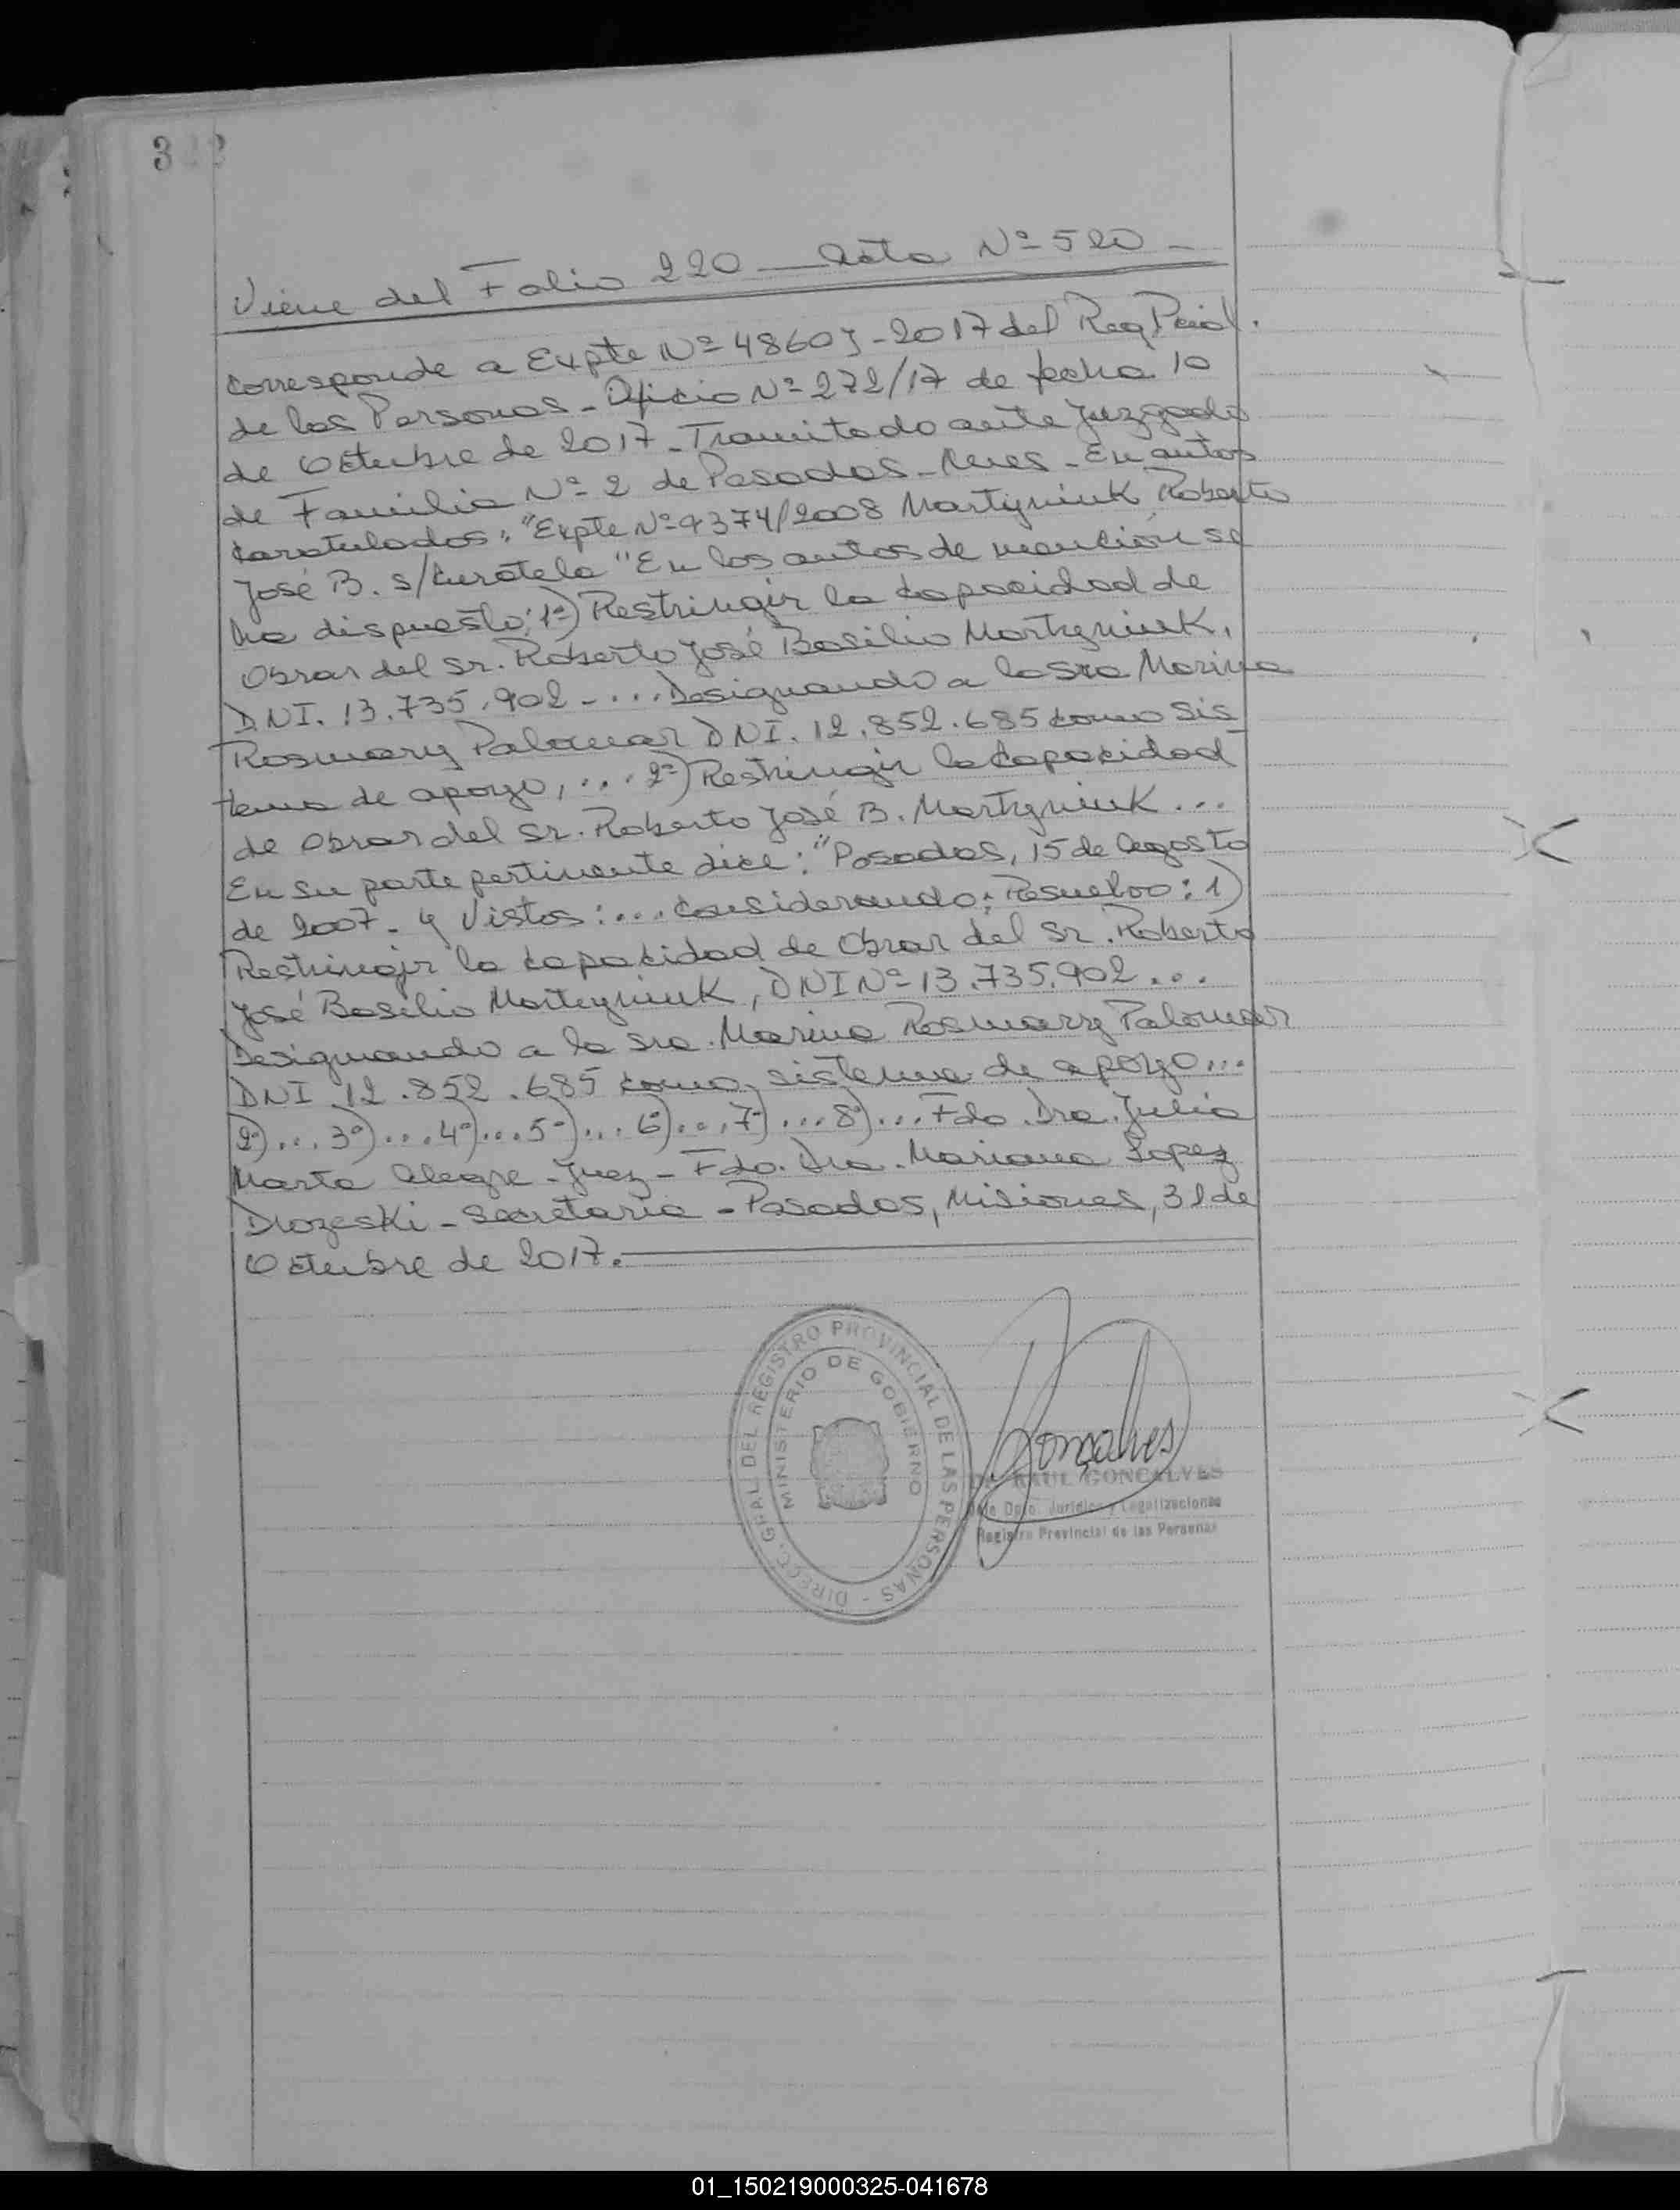 322
Viene del Folio 220 — Acta Nº 520 -
Corresponde a Expte Nº 4860 -2017 del Reg Pcial.
de las Personas - Oficio Nº 272/17 de fecha 10
de Octubre de 2017 - Tramitado ante Juzgado
de Familia Nº 2 de Posadas - Mnes - En autos
Caratulados: "Expte Nº 4374/2008 Martyniuk Roberto
José B. s/Curatela" En los autos de mención se
ha dispuesto: 1º) Restringir la Capacidad de
Obrar del Sr. Roberto José Basilio Martyniuk,
DNI. 13.735.902 - ... Designando a la Sra Marina
Rosmary Palomar DNI. 12.852.685 como Sis
tema de apoyo, ... 2º) Restringir la Capacidad
de Obrar del Sr. Roberto José B. Martyniuk ...
En su parte pertinente dice: "Posadas, 15 de Agosto
de 2007 - y Vistos: ... Considerando: Resuelvo: 1)
Restringir la Capacidad de Obrar del Sr. Roberto
José Basilio Martyniuk, DNI Nº 13.735.902 ...
Designando a la Sra. Marina Rosmary Palomar
DNI 12.852.685 como sistema de apoyo ...
2º) ... 3º) ... 4º) ... 5º) ... 6º) ... 7º) ... 8º) ... Fdo. Dra. Julia
Marta Alegre - Juez - Fdo. Dra. Mariana Lopez
Drozeski - Secretaria - Posadas, Misiones, 31 de
Octubre de 2017.
DIRECC. GRAL DEL REGISTRO PROVINCIAL DE LAS PERSONAS -
MINISTERIO DE GOBIERNO
Gonçalves
RAUL GONCALVES
Dpto. Jurídico y Legalizaciones
Registro Provincial de las Personas
01_150219000325-041678